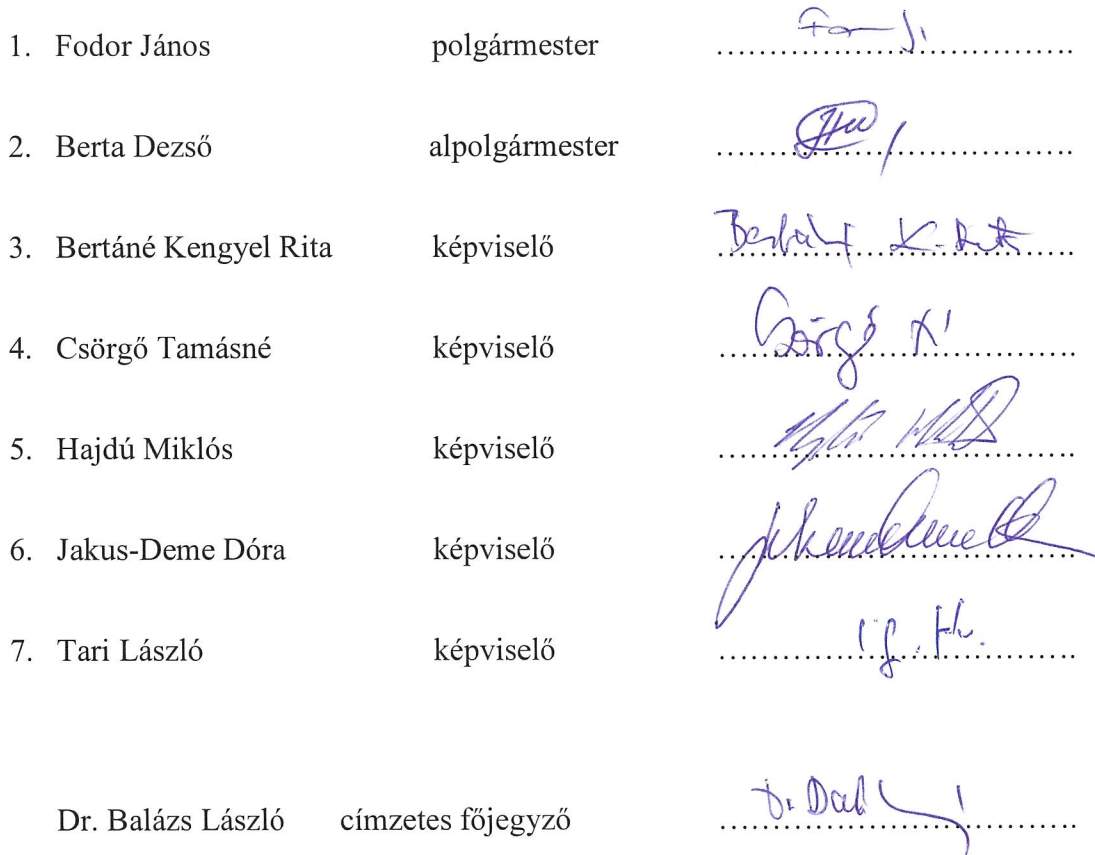 1. Fodor János polgármester
2. Berta Dezső alpolgármester
3. Bertáné Kengyel Rita képviselő Bertáné K. Rita
4. Csörgő Tamásné képviselő Csörgő
5. Hajdú Miklós képviselő
6. Jakus-Deme Dóra képviselő
7. Tari László képviselő
Dr. Balázs László címzetes főjegyző